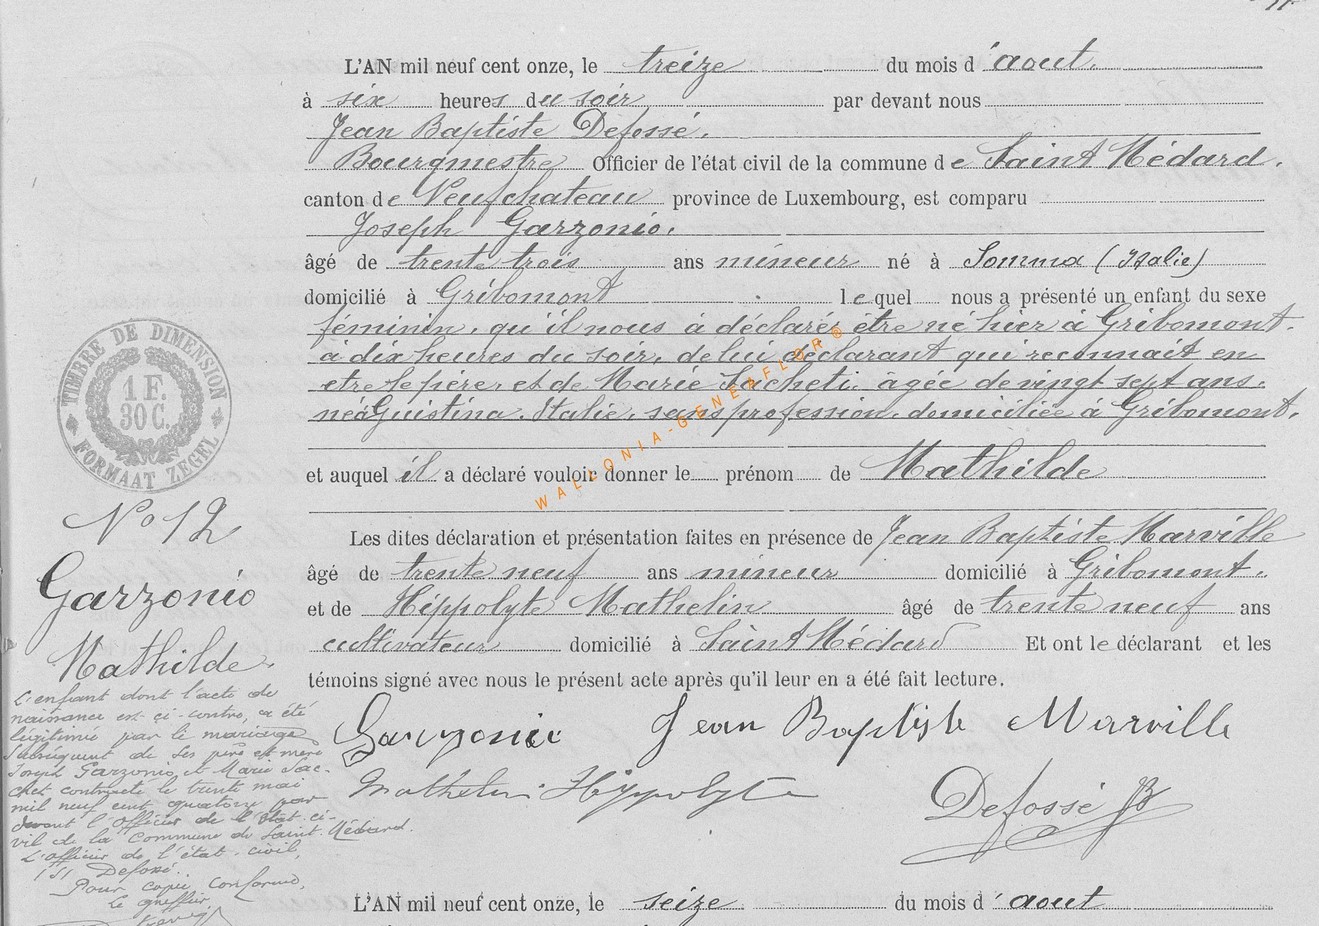 L'AN mil neuf cent onze, le treize du mois d'aout.
à six heures du soir par devant nous
Jean Baptiste Defossé.
Bourgmestre Officier de l'état civil de la commune de Saint Médard.
canton de Neufchateau province de Luxembourg, est comparu
Joseph Garzonio.
âgé de trente trois ans mineur né à Somma (Italie)
domicilié à Gribomont lequel nous a présenté un enfant du sexe
féminin, qu'il nous à déclarée être né hier à Gribomont.
à dix heures du soir, de lui déclarant qui reconnait en
etre le père, et de Marie Sacheti, âgée de vingt sept ans.
née à Guistina. Italie, sans profession, domiciliée à Gribomont.
et auquel il a déclaré vouloir donner le prénom de Mathilde
WALLONIA-GENEAFLOR®
TIMBRE DE DIMENSION
1 F.
30 C.
FORMAAT ZEGEL
N° 12
Garzonio
Mathilde.
Les dites déclaration et présentation faites en présence de Jean Baptiste Marville
âgé de trente neuf ans mineur domicilié à Gribomont.
et de Hippolyte Mathelin âgé de trente neuf ans
cultivateur domicilié à Saint Médard Et ont le déclarant et les
témoins signé avec nous le présent acte après qu'il leur en a été fait lecture.
Garzonio Jean Baptiste Marville
Mathelin Hippolyte
Defossé JB
L'enfant dont l'acte de
naissance est ci-contre, a été
légitimé par le mariage
subséquent de ses père et mère
Joseph Garzonio et Marie Sac-
chet contracté le trente mai
mil neuf cent quatorze par-
devant l'Officier de l'Etat-ci-
vil de la Commune de Saint Médard.
L'officier de l'état-civil,
(s) Defossé.
Pour copie conforme,
Le greffier,
L'AN mil neuf cent onze, le seize du mois d'aout